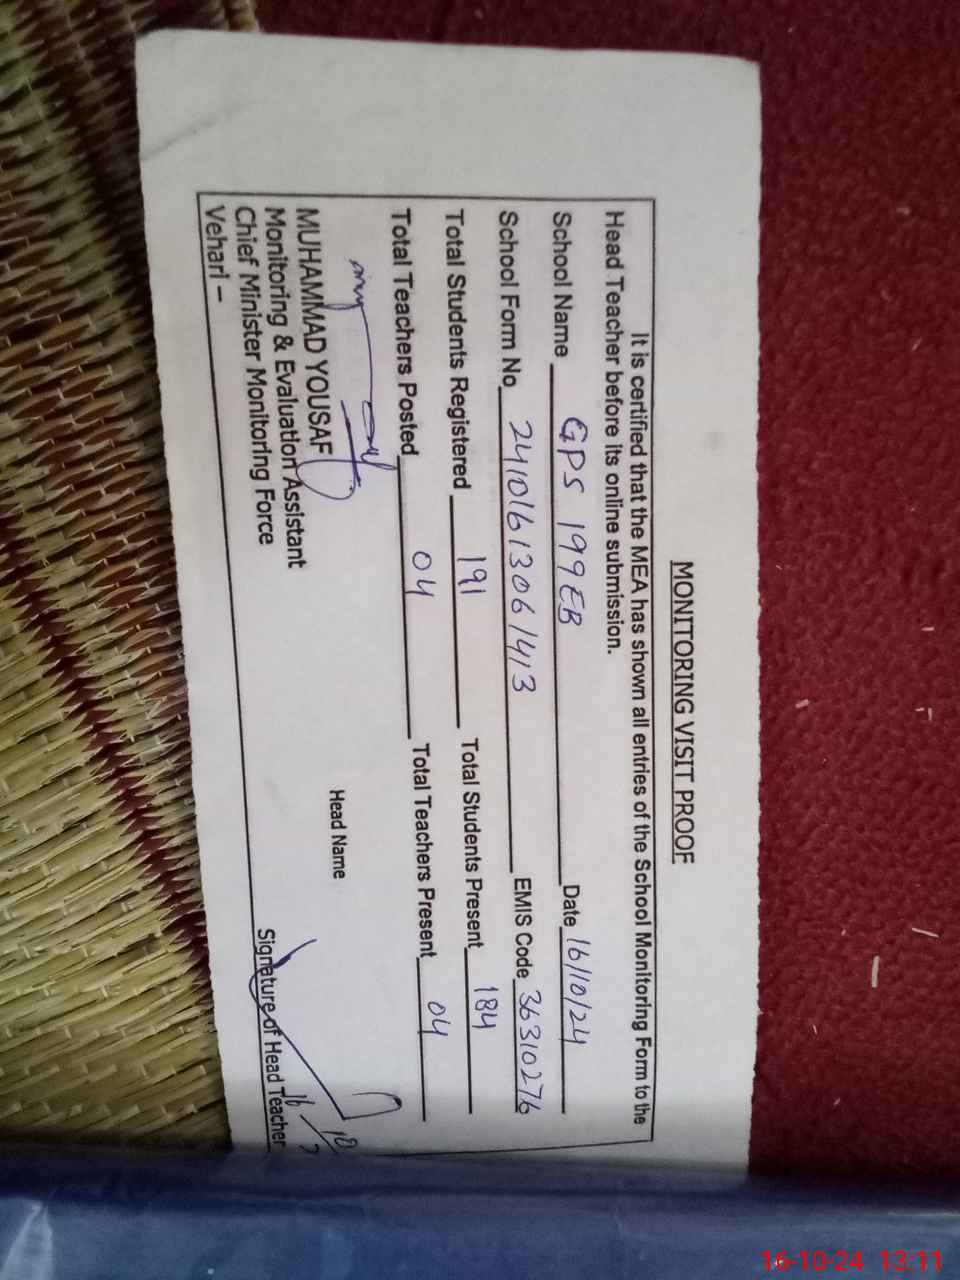 MONITORING VISIT PROOF
It is certified that the MEA has shown all entries of the School Monitoring Form to the
Head Teacher before its online submission.
School Name GPS 199EB Date 16/10/24
School Form No 24101613061413 EMIS Code 36310276
Total Students Registered 191 Total Students Present 184
Total Teachers Posted 04 Total Teachers Present 04
Head Name
MUHAMMAD YOUSAF
Monitoring & Evaluation Assistant
Chief Minister Monitoring Force
Vehari –
Signature of Head Teacher
16-10-24 13:11